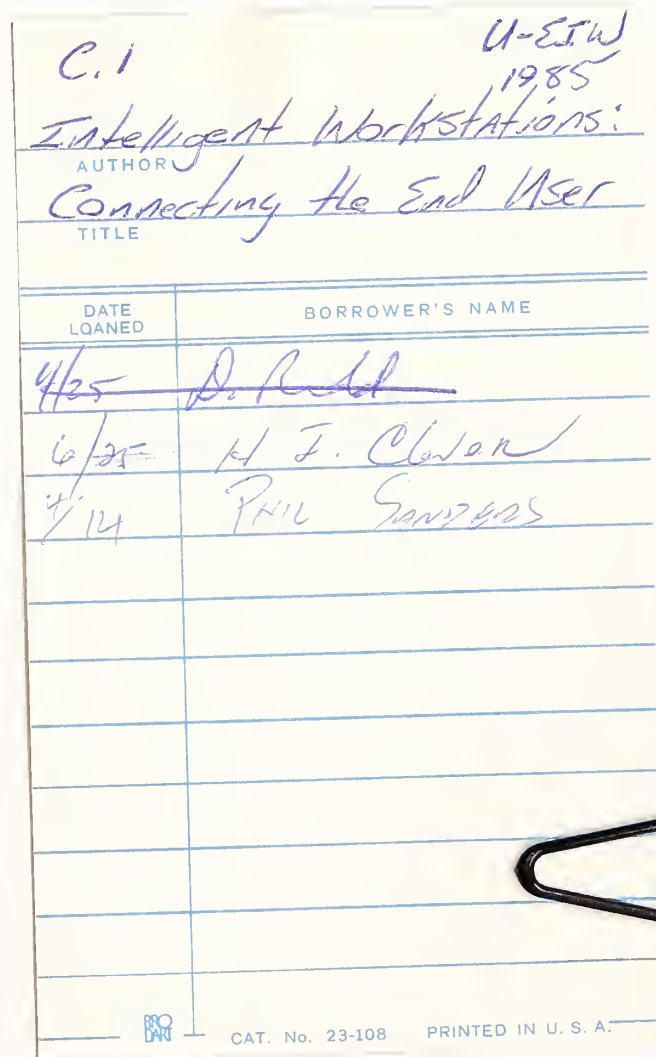 C.1 U-EIW
1985
Intelligent Workstations:
AUTHOR
Connecting the End User
TITLE
DATE LOANED BORROWER'S NAME
4/25 D.
6/25 H J.
/14 PHIL SANDERS
BRO DART CAT. No. 23-108 PRINTED IN U. S. A.